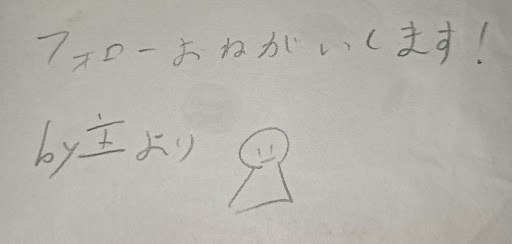 フォローおねがいします！
by主より